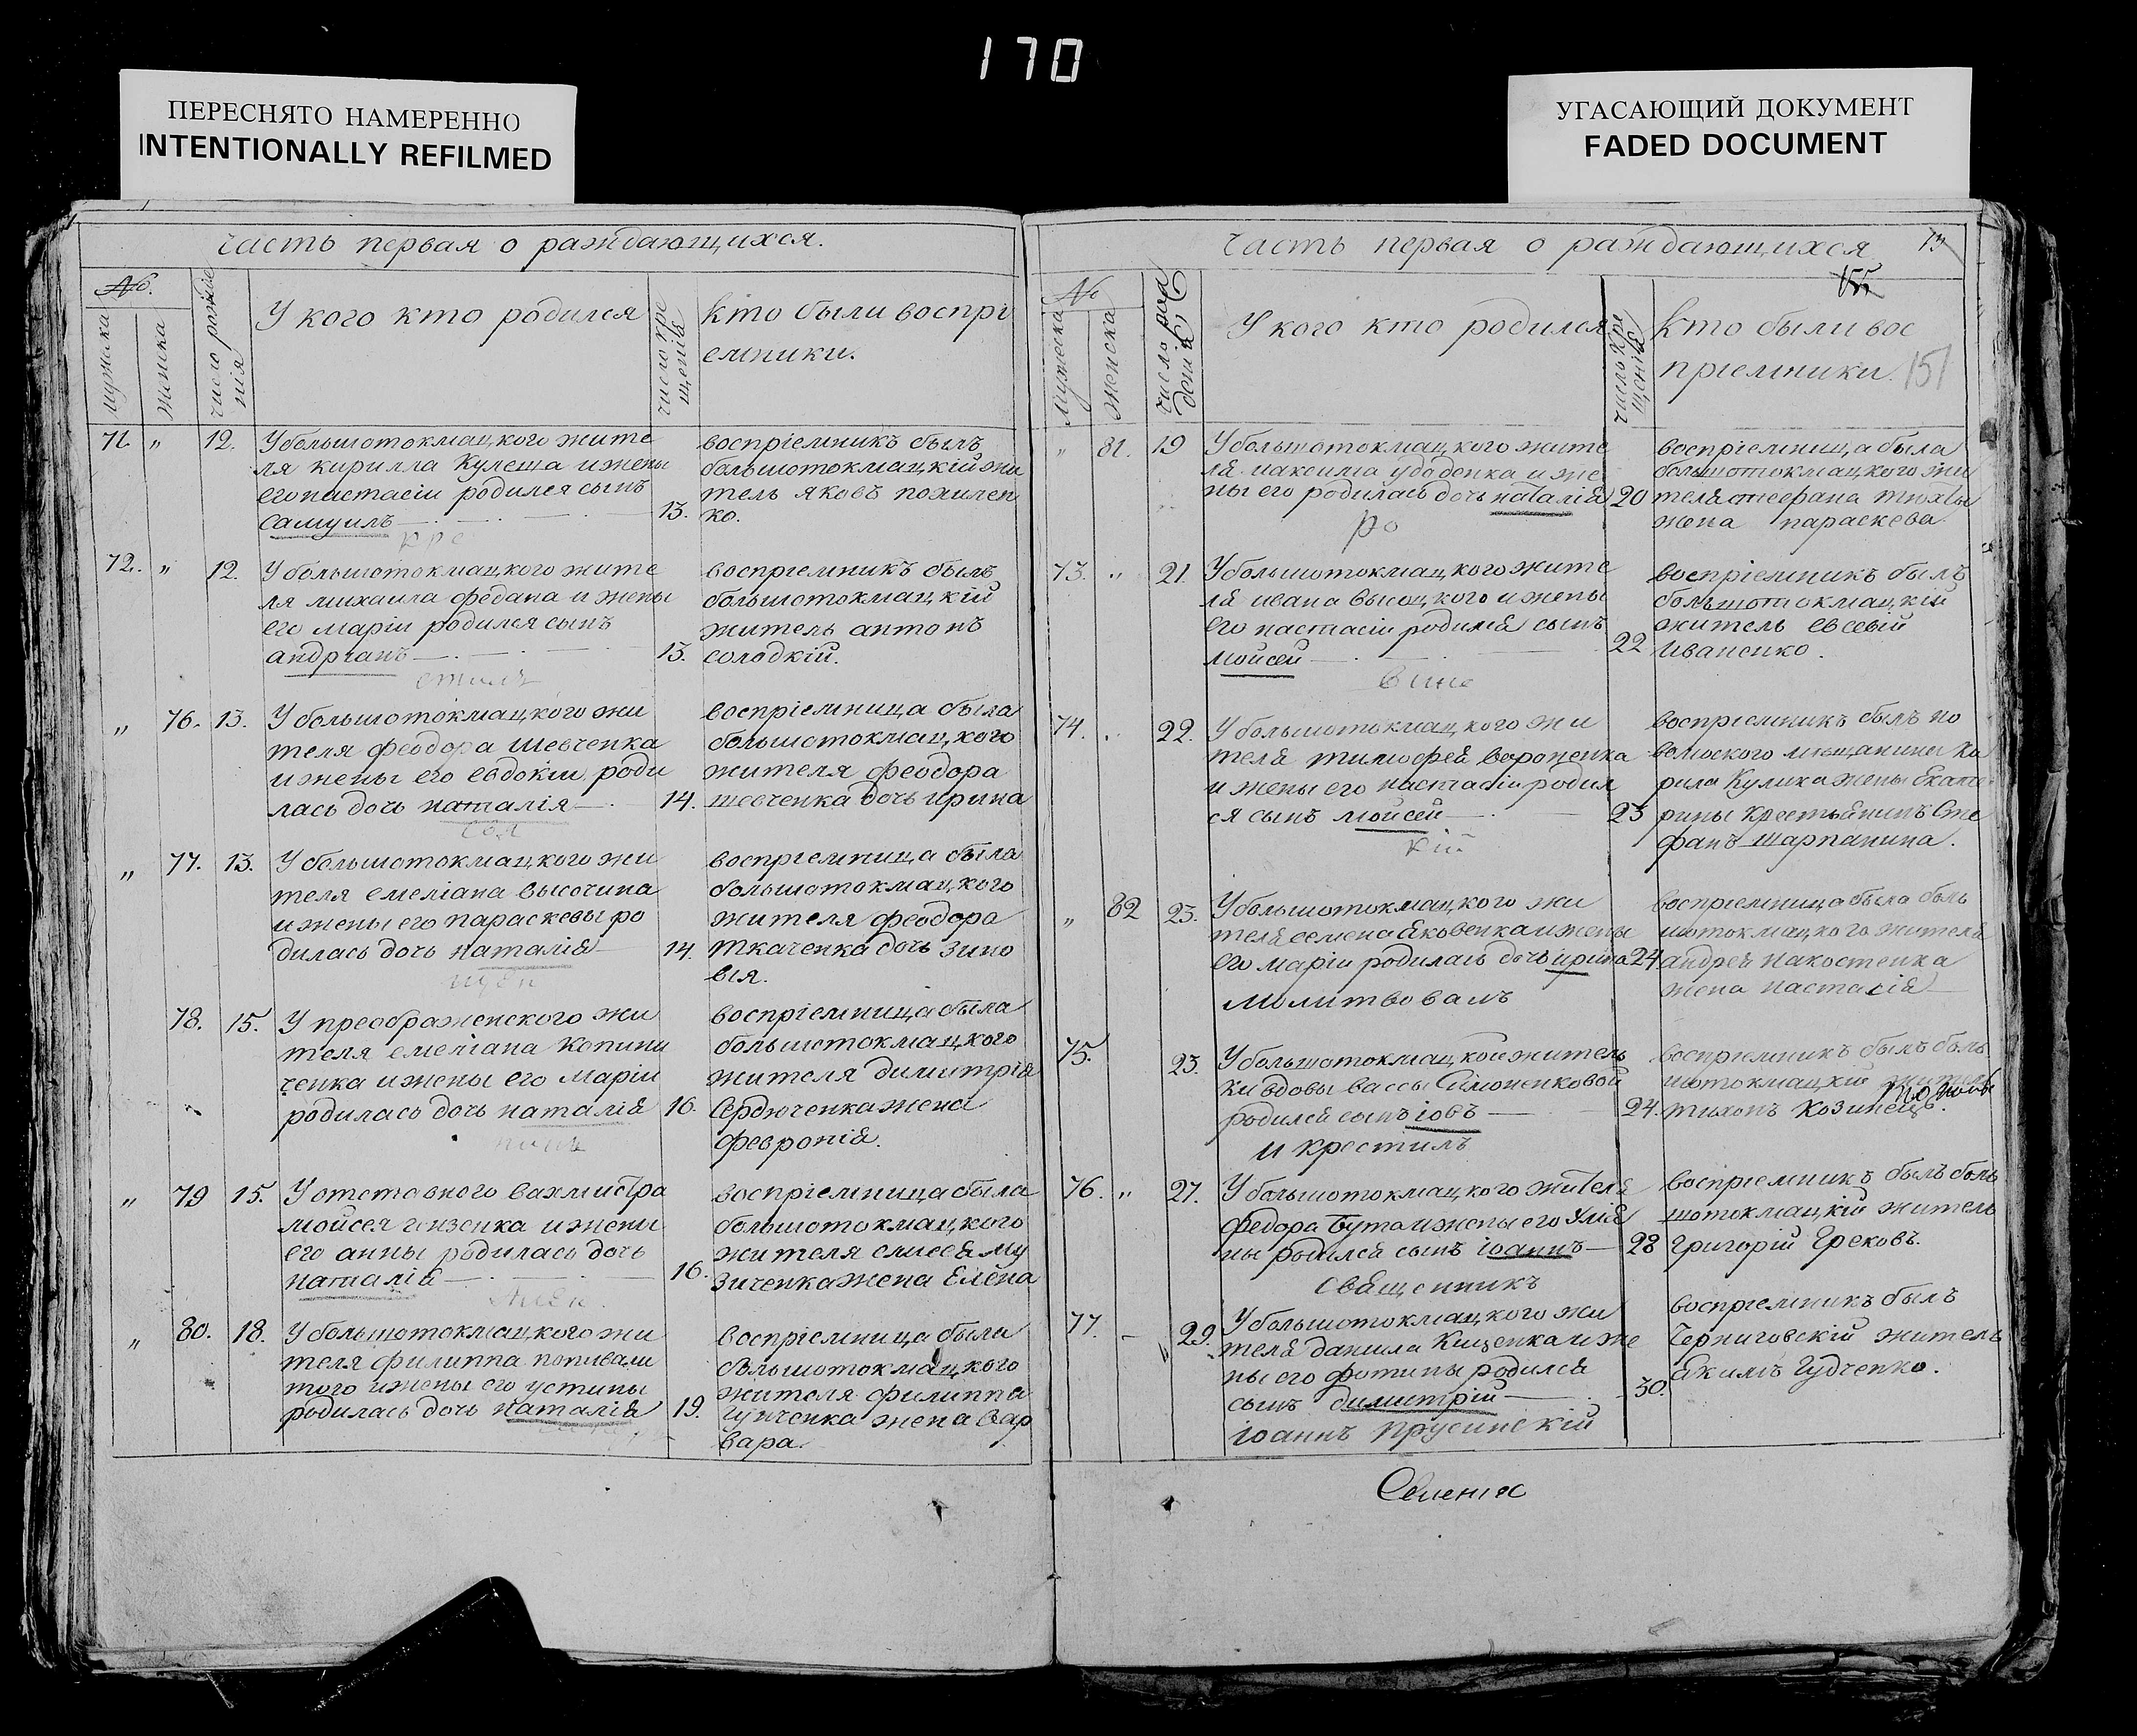 170
ПЕРЕСНЯТО НАМЕРЕННО
INTENTIONALLY REFILMED
УГАСАЮЩИЙ ДОКУМЕНТ
FADED DOCUMENT
часть первая о раждающихся.
№.
мужеска
женска
число рожде
нія
У кого кто родился
число кре
щенія
кто были воспрі
емники.
71. „ 12.
У большотокмацкого жите
ля кирилла Кулеша и жены
его настасіи родился сынъ
самуилъ
13.
воспріемникъ былъ
большотокмацкій жи
тель яковъ похилен
ко.
кре
72. „ 12.
У большотокмацкого жите
ля михаила федана и жены
его маріи родился сынъ
андріанъ
13.
воспріемникъ былъ
большотокмацкій
житель антонъ
солодкій.
стилъ
„ 76. 13.
У большотокмацкого жи
теля феодора Шевченка
и жены его евдокіи роди
лась дочь наталія
14.
воспріемница была
большотокмацкого
жителя феодора
шевченка дочь ирина
свя
„ 77. 13.
У большотокмацкого жи
теля емеліана высочина
и жены его параскевы ро
дилась дочь наталія
14.
воспріемница была
большотокмацкого
жителя феодора
ткаченка дочь зино
вія.
щен
78. 15.
У преображенского жи
теля емеліана Копини
ченка и жены его Маріи
родилась дочь наталія
16.
воспріемница была
большотокмацкого
жителя димитрія
Сердюченка жена
февронія.
никъ
„ 79 15.
У отставного вахмистра
мойсея гензенка и жены
его анны родилась дочь
наталія
16.
воспріемница была
большотокмацкого
жителя елисея му
зиченка жена Елена
„ 80. 18.
У большотокмацкого жи
теля филиппа попивали
того и жены его устины
родилась дочь наталія
19.
воспріемница была
большотокмацкого
жителя филиппа
жена вар
вара.
часть первая о раждающихся
151
№
мужеска
женска
число рож
денія
У кого кто родился
число кре
щенія
кто были вос
пріемники.
„ 81. 19
У большотокмацкого жите
ля максима удоденка и же
ны его родилась дочь наталія
20
воспріемница была
большотокмацкого жи
теля стефана
жена параскева.
ро
73. „ 21.
У большотокмацкого жите
ля ивана высоцкого и жены
его настасіи родился сынъ
мойсей
22
воспріемникъ былъ
большотокмацкій
житель евсевій
Иваненко.
74. „ 22.
У большотокмацкого жи
теля тимофея вороненка
и жены его настасіи родил
ся сынъ мойсей
23
воспріемникъ былъ но
мещанина Ки
рила Кулика жены Екате
рины крестьянинъ Сте
фанъ шарпанина.
кій
„ 82 23.
У большотокмацкого жи
теля семена яковенка и жены
его маріи родилась дочь ирина
24
воспріемница была боль
шотокмацкого жителя
андрея накостенка
жена настасія
молитвовалъ
75. 23.
У большотокмацкой житель
ки вдовы вассы Симоненковой
родился сынъ іовъ
24.
воспріемникъ былъ боль
шотокмацкій житель
тихонъ козинецъ.
и крестилъ
76. „ 27.
У большотокмацкого жителя
федора бута и жены его Улія
ны родился сынъ іоаннъ
28
воспріемникъ былъ боль
шотокмацкій житель
григорій Грековъ.
священникъ
77. 29.
У большотокмацкого жи
теля данила Кищенка и же
ны его фотины родился
сынъ димитрій
30.
воспріемникъ былъ
Черниговскій житель
якимъ Гудченко.
іоаннъ Прусинскій